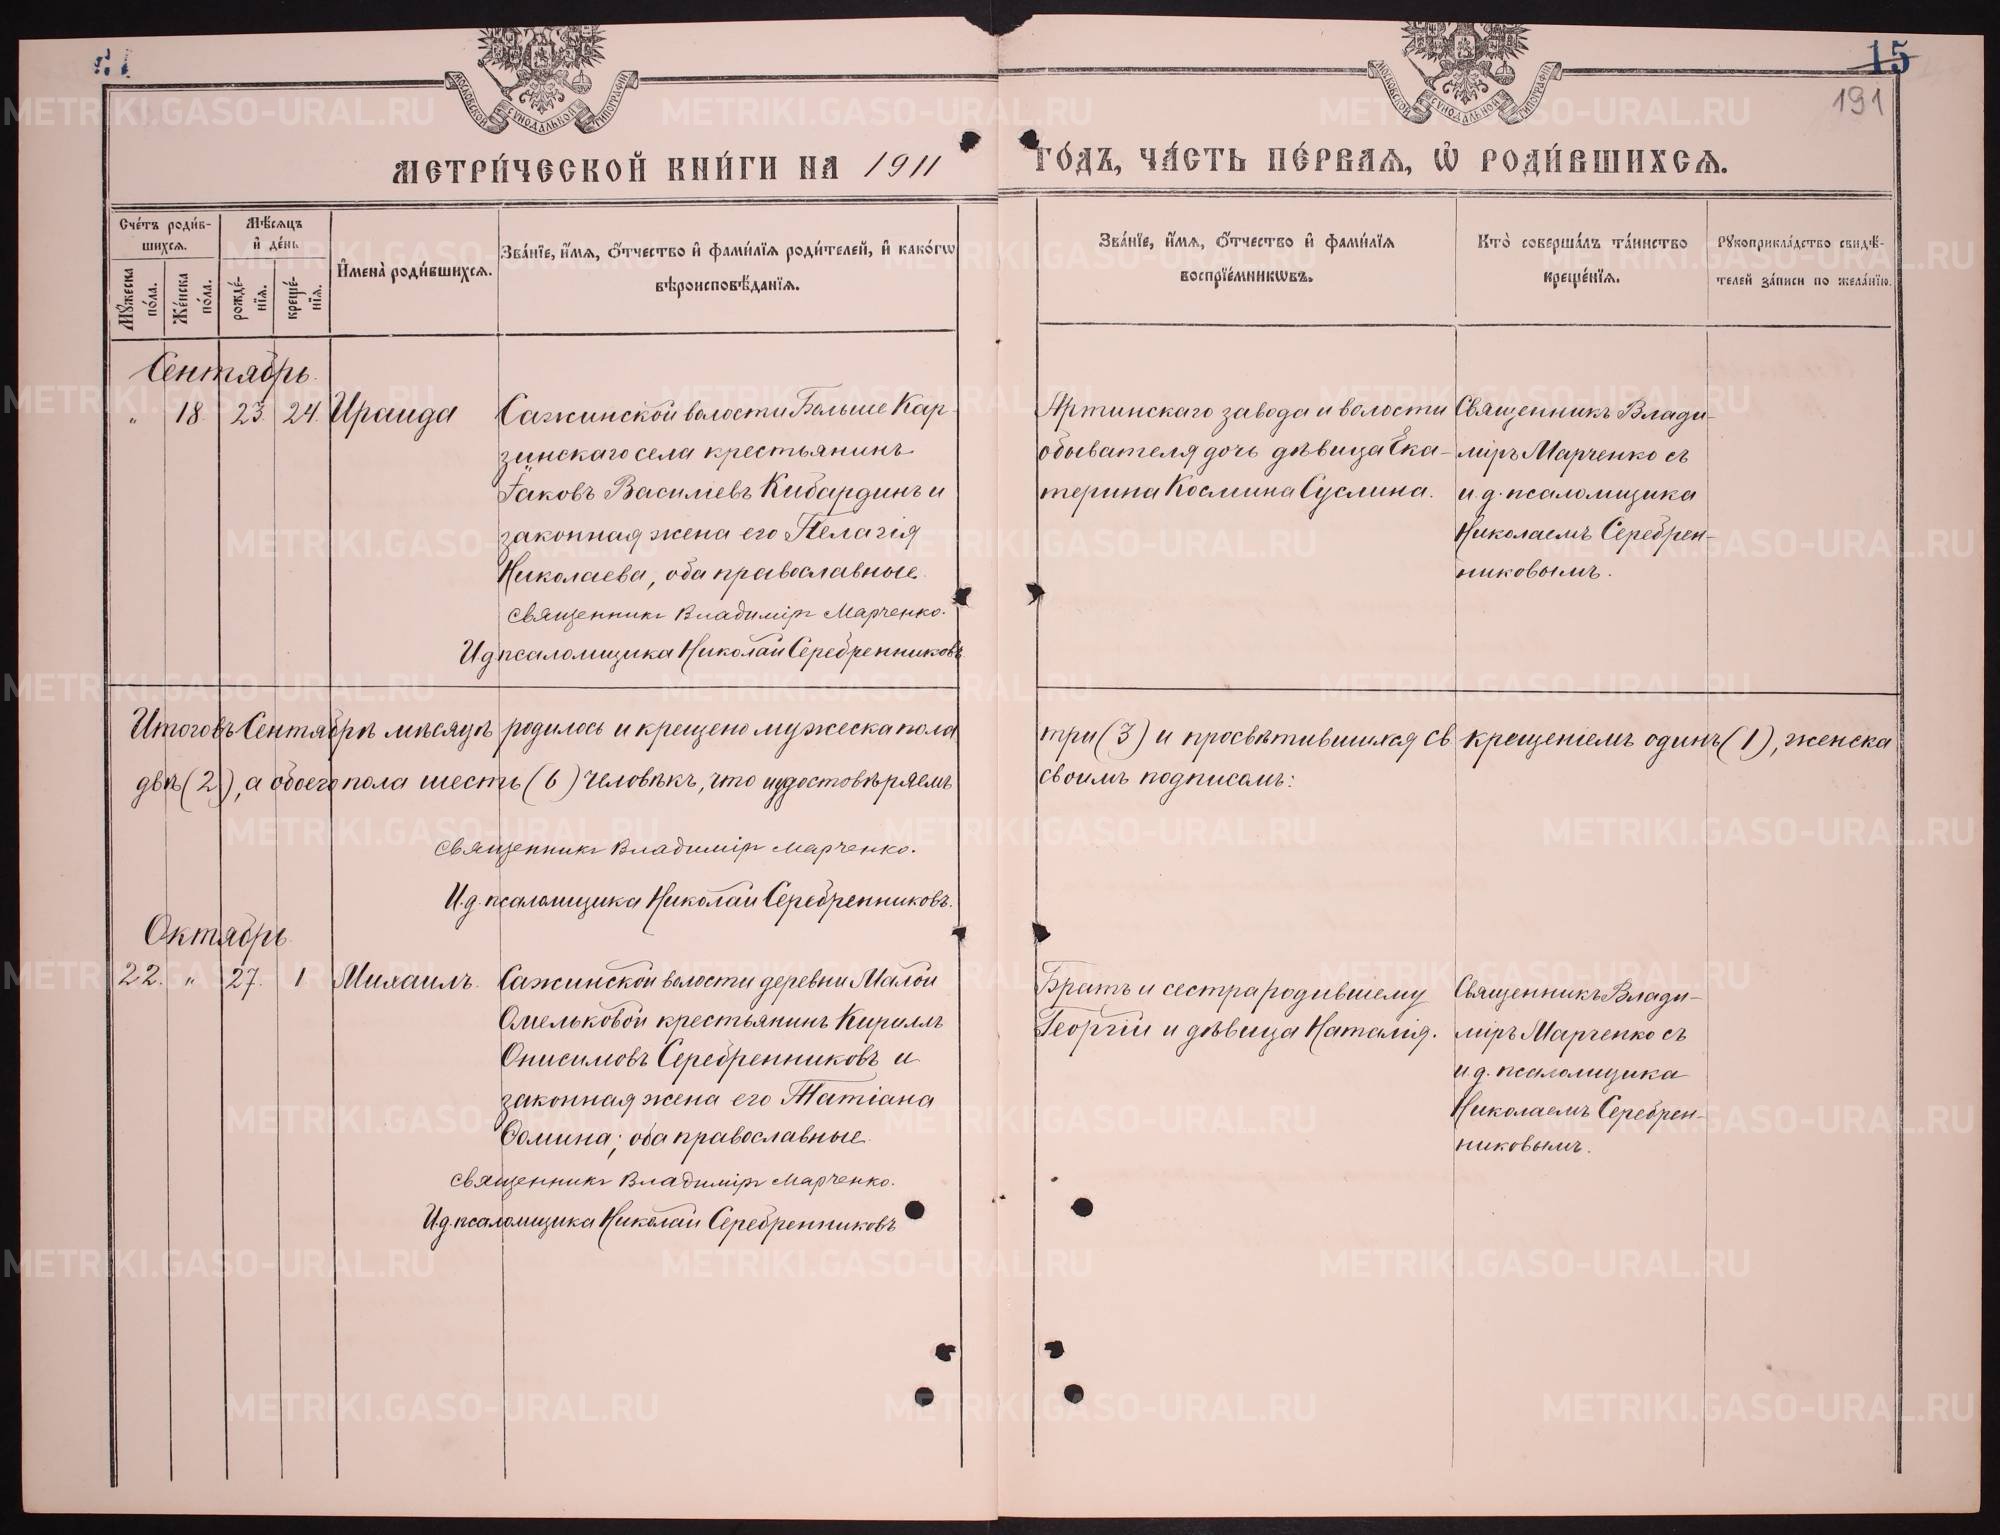 15
191
МОСКОВСКОЙ СѴНОДАЛЬНОЙ ТИПОГРАФІИ
МОСКОВСКОЙ СѴНОДАЛЬНОЙ ТИПОГРАФІИ
МЕТРИ́ЧЕСКОЙ КНИ́ГИ НА 1911
ГО́ДЪ, ЧА́СТЬ ПЕ́РВАѦ, Ѡ҆ РОДИ́ВШИХСѦ.
Сче́тъ роди́в-
шихсѧ.
Мꙋ́жеска
по́ла.
Же́нска
по́ла.
Мѣ́сѧцъ
и҆ де́нь
рожде́-
нїѧ.
креще́-
нїѧ.
И҆мена̀ роди́вшихсѧ.
Зва́нїе, и҆́мѧ, ѻ҆́тчество и҆ фами́лїѧ роди́телей, и҆ како́гѡ
вѣроисповѣ́данїѧ.
Зва́нїе, и҆́мѧ, ѻ҆́тчество и҆ фами́лїѧ
воспрїе́мникѡвъ.
Кто̀ соверша́лъ та́инство
креще́нїѧ.
Рꙋкоприкла́дство свидѣ́-
телей за́писи по жела́нїю.
Сентябрь.
" 18. 23. 24. Ираида
Сажинской волости Больше Кар-
зинскаго села крестьянинъ
Іаковъ Василіевъ Кибардинъ и
законная жена его Пелагія
Николаева, оба православные.
Священникъ Владиміръ Марченко.
И д псаломщика Николай Серебренниковъ
Артинскаго завода и волости
обывателя дочь дѣвица Ека-
терина Космина Суслина.
Священникъ Влади-
міръ Марченко съ
и.д. псаломщика
Николаемъ Серебрен-
никовымъ.
Итого въ Сентябрѣ мѣсяцѣ родилось и крещено мужеска пола три (3) и просвѣтившихся св. крещеніемъ одинъ (1), женска
двѣ (2), а обоего пола шесть (6) человѣкъ, что и удостовѣряемъ своимъ подписомъ:
Священникъ Владиміръ Марченко.
И.д. псаломщика Николай Серебренниковъ.
Октябрь
22. " 27. 1 Михаилъ.
Сажинской волости деревни Малой
Омельковой крестьянинъ Кириллъ
Онисимовъ Серебренниковъ и
законная жена его Татіана
Ѳомина; оба православные.
Священникъ Владиміръ Марченко.
И.д. псаломщика Николай Серебренниковъ
Братъ и сестра родившему
Георгій и дѣвица Наталія.
Священникъ Влади-
міръ Марченко съ
и.д. псаломщика
Николаемъ Серебрен-
никовымъ.
METRIKI.GASO-URAL.RU